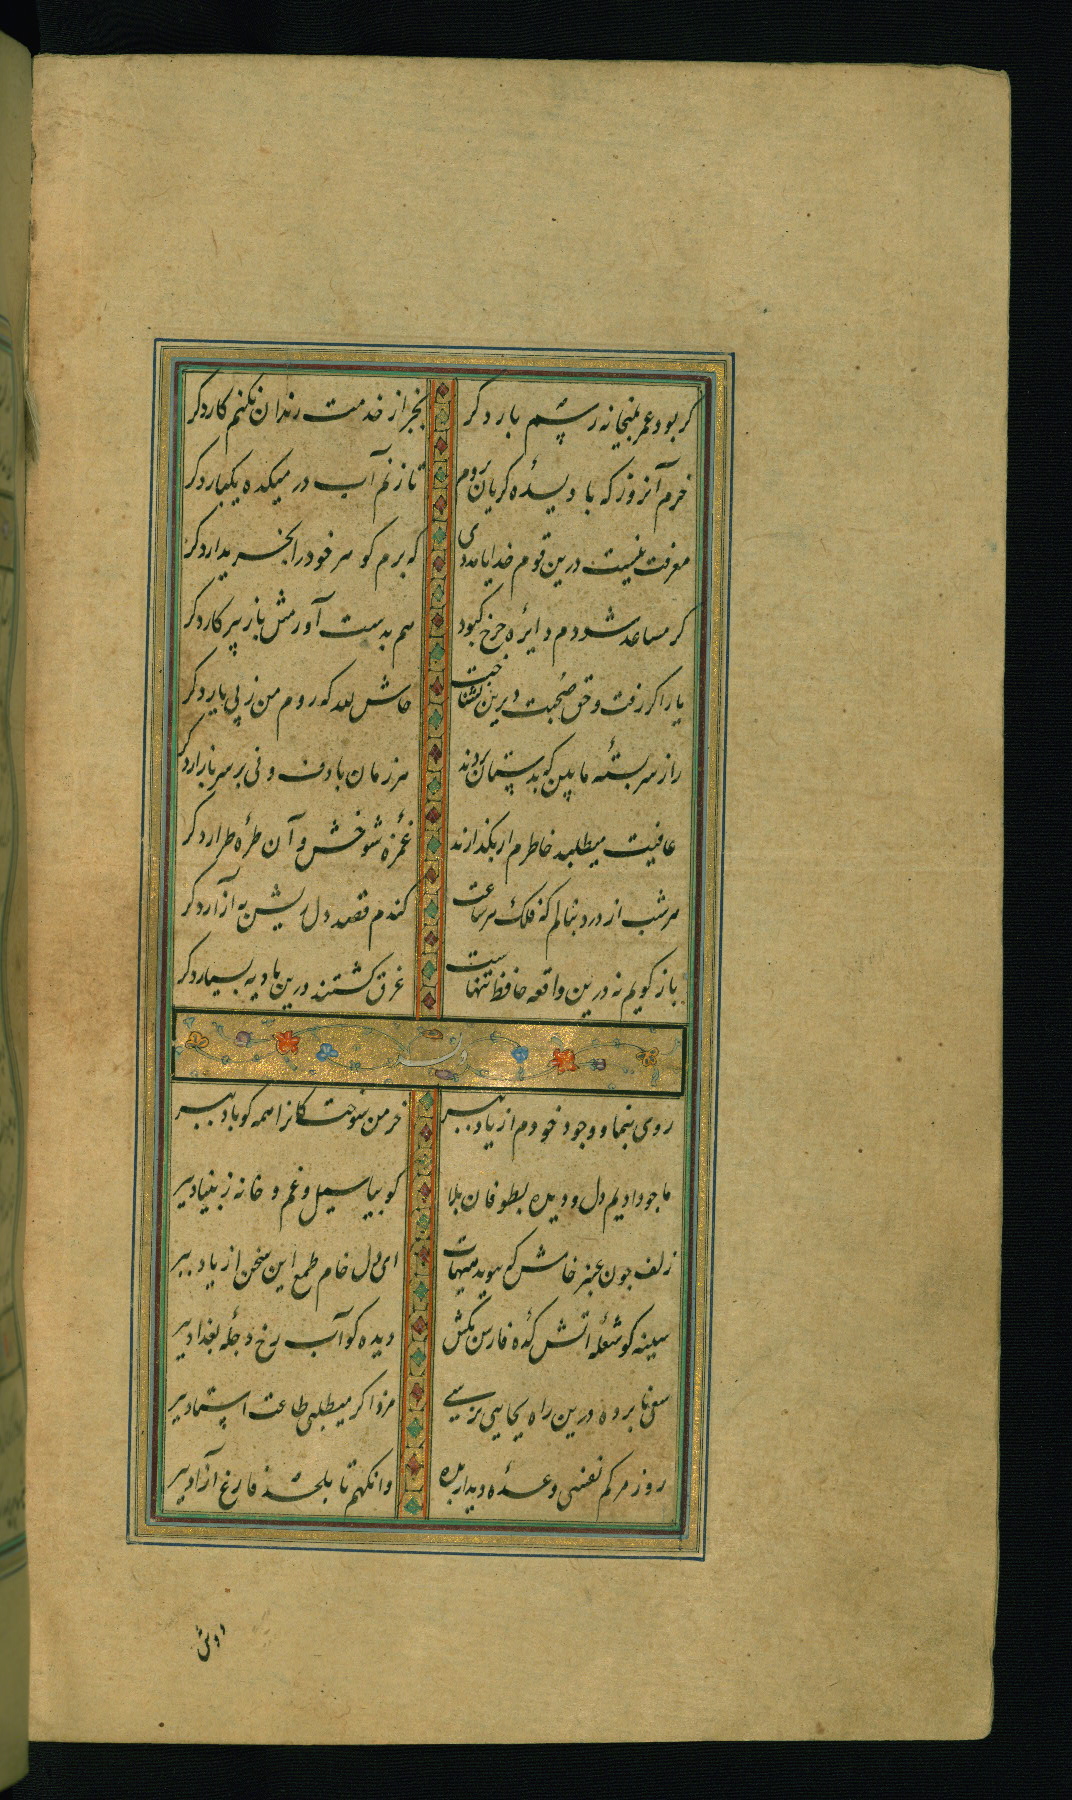 کر بود عمر بمیخانه رسم بار دکر بجز از خدمت رندان نکنم کار دکر
خرم آنروز که با دیدهٔ کریان بروم تا زنم آب در میکده یکبار دکر
معرفت نیست درین قوم خدایا مددی که برم کوهر خود را بخریدار دکر
کر مساعد شودم دایرهٔ چرخ کبود هم بدست آورمش باز بپرکار دکر
یار اکر رفت و حق صحبت دیرین نشناخت حاش لله که روم من ز پی یار دکر
راز سربستهٔ ما بین که بدستان کردند هر زمان با دف و نی بر سر بازار دکر
عافیت میطلبد خاطرم ار بکذارند غمزه شوخش و آن طرهٔ طرار دکر
هر شب از درد بنالم که فلک هر ساعت کندم قصد دل ریش به آزار دکر
باز کویم نه درین واقعه حافظ تنهاست غرق کشتند درین بادیه بسیار دکر
وله
روی بنما و وجود خودم از یاد ببر خرمن سوختکانرا همه کو باد ببر
ما جو دادیم دل و دیده بطوفان بلا کو بیا سیل و غم و خانه ز بنیاد ببر
زلف جون عنبر خامش که ببوید هیهات ای دل خام طمع این سخن از یاد ببر
سینه کو شعله اتشکدهٔ فارس بکش دیده کو آب رخ دجلهٔ بغداد ببر
سعی نا برده درین راه بجایی نرسی مزد اکر میطلبی طاعت استاد ببر
روز مرکم نفسی وعدهٔ دیدار بده وانکهم تا بلحد فارغ آزاد ببر
دوش